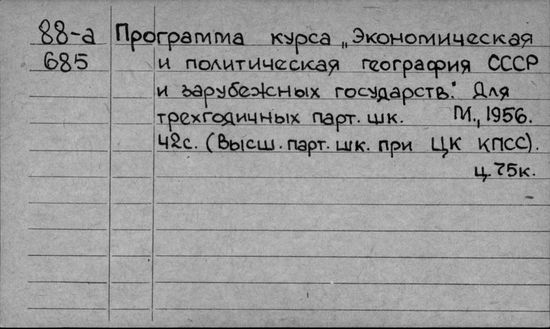 88-а Программа курса „Экономическая
685 и политическая география СССР
и зарубежных государств." Для
трехгодичных парт. шк. М., 1956.
42с. (Высш. парт. шк. при ЦК КПСС).
ц. 75к.